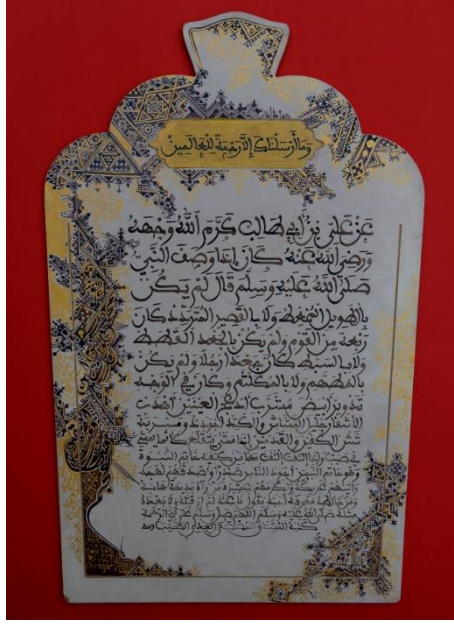 وما أرسلناك إلا رحمة للعالمين
عن علي بن أبي طالب كرم الله وجهه
ورضي الله عنه كان إذا وصف النبي
صلى الله عليه وسلم قال لم يكن
بالطويل الممغط ولا بالقصير المتردد كان
ربعة من القوم ولم يكن بالجعد القطط
ولا بالسبط كان جعدا رجلا ولم يكن
بالمطهم ولا بالمكلثم وكان في الوجه
تدوير أبيض مشرب أدعج العينين أهدب
الأشفار جليل المشاش والكتد أجرد ذو مسربة
شثن الكفين والقدمين إذا مشى تقلع كأنما يمشي
في صبب وإذا التفت التفت معا بين كتفيه خاتم النبوة
وهو خاتم النبيين أجود الناس صدرا وأصدقهم لهجة
وألينهم عريكة وأكرمهم عشرة من رآه بديهة هابه
ومن خالطه معرفة أحبه يقول ناعته لم أر قبله ولا بعده
مثله صلى الله عليه وسلم